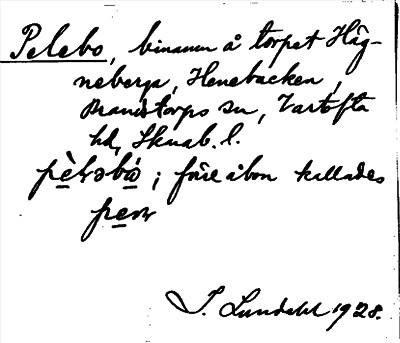 Pelebo, binamn å torpet Häg-
neberga, Henebacken,
Brandstorps sn, Vartofta
hd, Skarab. l.
; förre åbon kallades

I. Lundahl 1928.